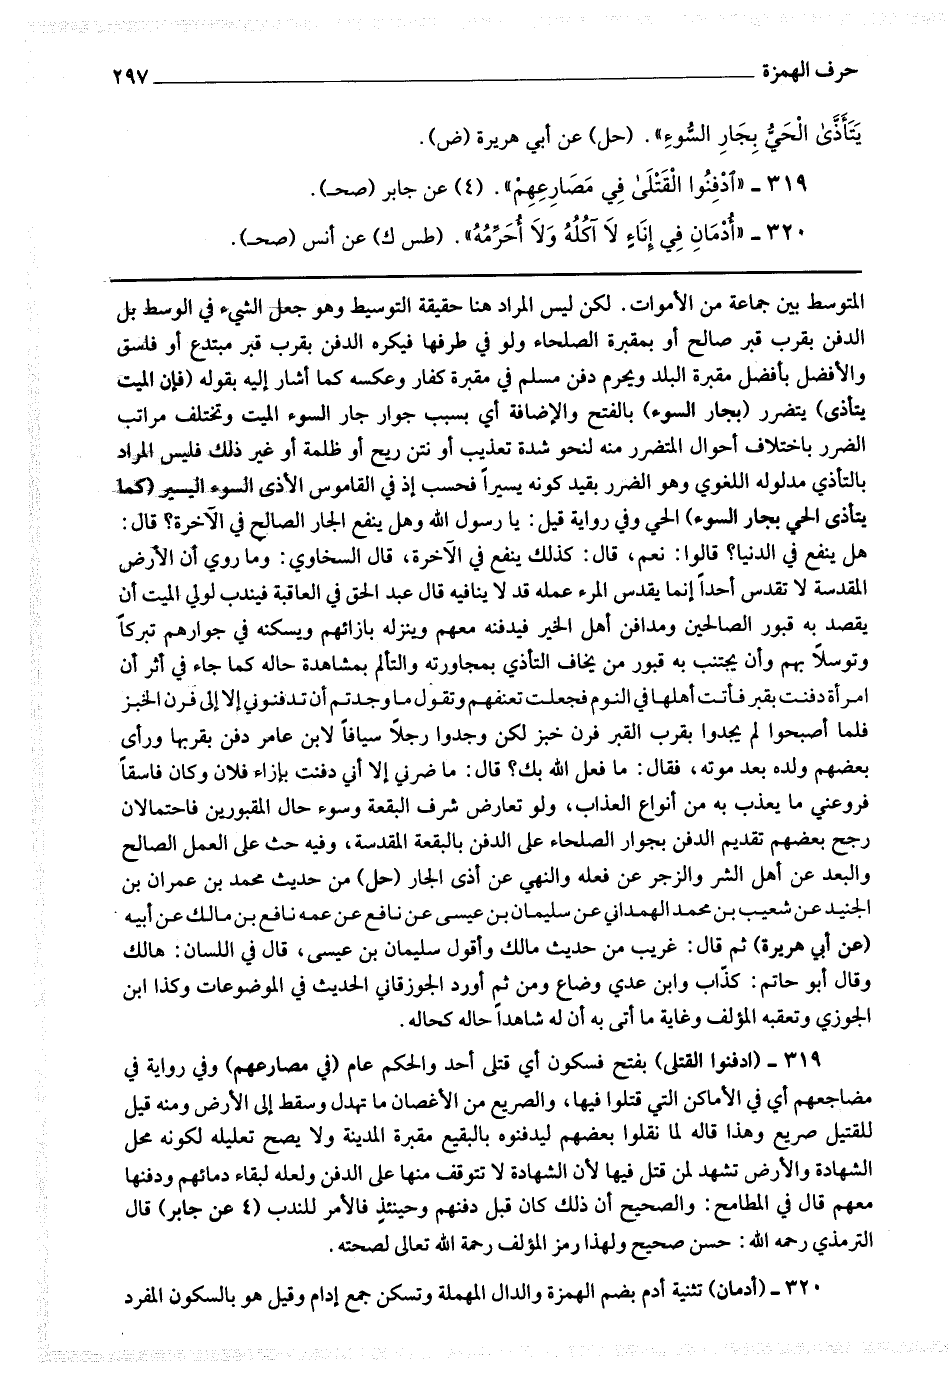 حرف الهمزة ٢٩٧
يَتَأَذَّىٰ الْحَيُّ بِجَارِ السُّوءِ». (حل) عن أبي هريرة (ض).
٣١٩ ـ «ٱدْفِنُوا الْقَتْلَىٰ فِي مَصَارِعِهِمْ». (٤) عن جابر (صحـ).
٣٢٠ ـ «أُدْمَانِ فِي إِنَاءٍ لاَ آكُلُهُ وَلاَ أُحَرِّمُهُ». (طس ك) عن أنس (صحـ).
المتوسط بين جماعة من الأموات. لكن ليس المراد هنا حقيقة التوسيط وهو جعل الشيء في الوسط بل
الدفن بقرب قبر صالح أو بمقبرة الصلحاء ولو في طرفها فيكره الدفن بقرب قبر مبتدع أو فاسق
والأفضل بأفضل مقبرة البلد ويحرم دفن مسلم في مقبرة كفار وعكسه كما أشار إليه بقوله (فإن الميت
يتأذى) يتضرر (بجار السوء) بالفتح والإضافة أي بسبب جوار جار السوء الميت وتختلف مراتب
الضرر باختلاف أحوال المتضرر منه لنحو شدة تعذيب أو نتن ريح أو ظلمة أو غير ذلك فليس المراد
بالتأذي مدلوله اللغوي وهو الضرر بقيد كونه يسيراً فحسب إذ في القاموس الأذى السوء اليسير (كما
يتأذى الحي بجار السوء) الحي وفي رواية قيل: يا رسول الله وهل ينفع الجار الصالح في الآخرة؟ قال:
هل ينفع في الدنيا؟ قالوا: نعم، قال: كذلك ينفع في الآخرة، قال السخاوي: وما روي أن الأرض
المقدسة لا تقدس أحداً إنما يقدس المرء عمله قد لا ينافيه قال عبد الحق في العاقبة فيندب لولي الميت أن
يقصد به قبور الصالحين ومدافن أهل الخير فيدفنه معهم وينزله بازائهم ويسكنه في جوارهم تبركاً
وتوسلاً بهم وأن يجتنب به قبور من يخاف التأذي بمجاورته والتألم بمشاهدة حاله كما جاء في أثر أن
امرأة دفنت بقبر فأتت أهلها في النوم فجعلت تعنفهم وتقول ما وجدتم أن تدفنوني إلا إلى فرن الخبز
فلما أصبحوا لم يجدوا بقرب القبر فرن خبز لكن وجدوا رجلاً سيافاً لابن عامر دفن بقربها ورأى
بعضهم ولده بعد موته، فقال: ما فعل الله بك؟ قال: ما ضرني إلا أني دفنت بإزاء فلان وكان فاسقاً
فروعني ما يعذب به من أنواع العذاب، ولو تعارض شرف البقعة وسوء حال المقبورين فاحتمالان
رجح بعضهم تقديم الدفن بجوار الصلحاء على الدفن بالبقعة المقدسة، وفيه حث على العمل الصالح
والبعد عن أهل الشر والزجر عن فعله والنهي عن أذى الجار (حل) من حديث محمد بن عمران بن
الجنيد عن شعيب بن محمد الهمداني عن سليمان بن عيسى عن نافع عن عمه نافع بن مالك عن أبيه
(عن أبي هريرة) ثم قال: غريب من حديث مالك وأقول سليمان بن عيسى، قال في اللسان: هالك
وقال أبو حاتم: كذّاب وابن عدي وضاع ومن ثم أورد الجوزقاني الحديث في الموضوعات وكذا ابن
الجوزي وتعقبه المؤلف وغاية ما أتى به أن له شاهداً حاله كحاله.
٣١٩ ـ (ادفنوا القتلى) بفتح فسكون أي قتلى أحد والحكم عام (في مصارعهم) وفي رواية في
مضاجعهم أي في الأماكن التي قتلوا فيها، والصريع من الأغصان ما تهدل وسقط إلى الأرض ومنه قيل
للقتيل صريع وهذا قاله لما نقلوا بعضهم ليدفنوه بالبقيع مقبرة المدينة ولا يصح تعليله لكونه محل
الشهادة والأرض تشهد لمن قتل فيها لأن الشهادة لا تتوقف منها على الدفن ولعله لبقاء دمائهم ودفنها
معهم قال في المطامح: والصحيح أن ذلك كان قبل دفنهم وحينئذٍ فالأمر للندب (٤ عن جابر) قال
الترمذي رحمه الله: حسن صحيح ولهذا رمز المؤلف رحمة الله تعالى لصحته.
٣٢٠ ـ (أدمان) تثنية أدم بضم الهمزة والدال المهملة وتسكن جمع إدام وقيل هو بالسكون المفرد